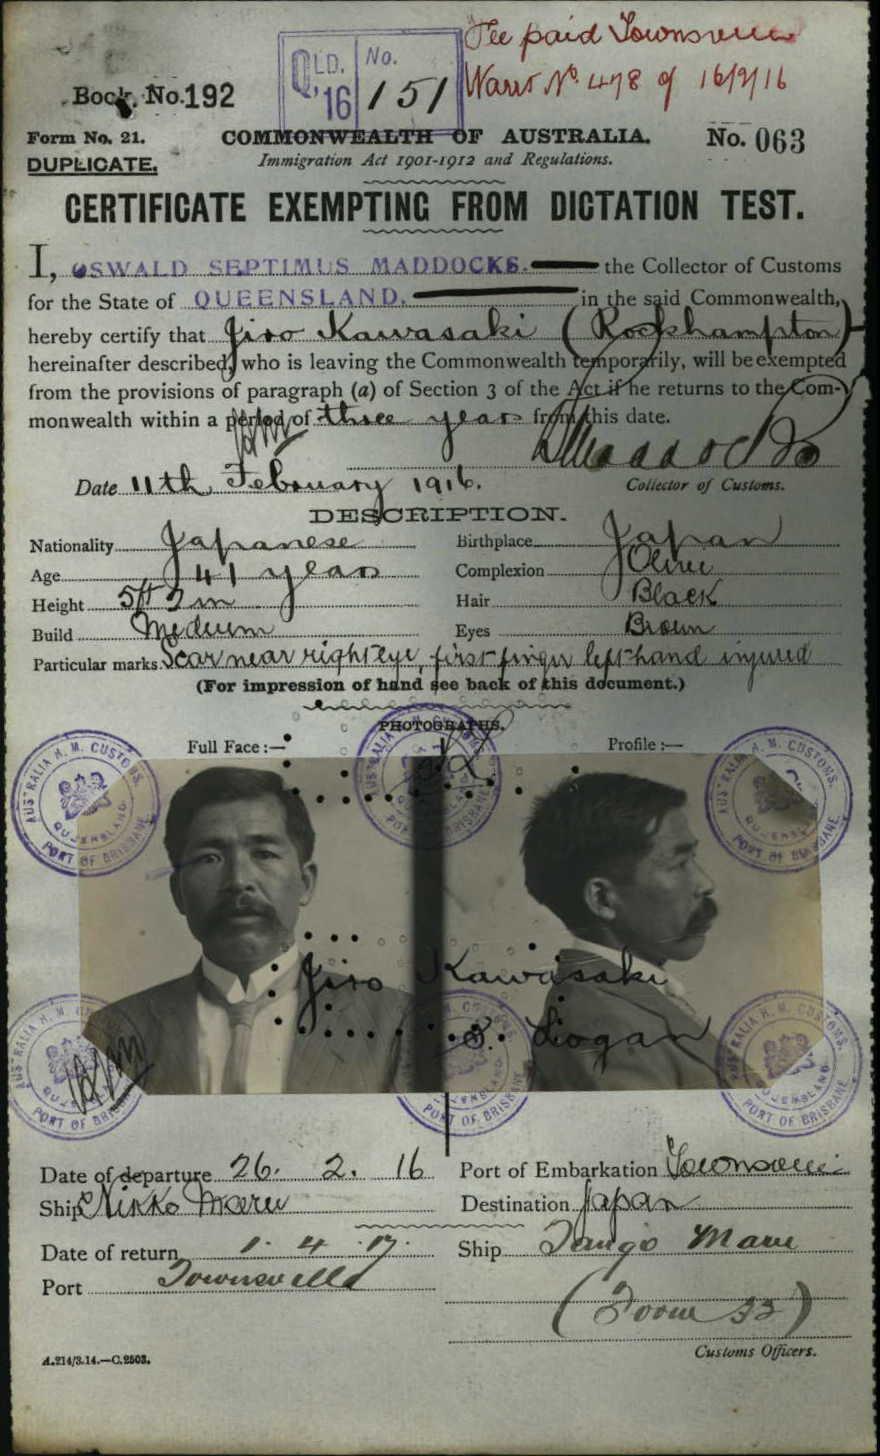 Fee paid Townsville
QLD. No.
'16 151
Warrt No. 478 of 16/2/16
Book No. 192
Form No. 21. COMMONWEALTH OF AUSTRALIA. No. 063
DUPLICATE. Immigration Act 1901-1912 and Regulations.
CERTIFICATE EXEMPTING FROM DICTATION TEST.
I, OSWALD SEPTIMUS MADDOCKS. the Collector of Customs
for the State of QUEENSLAND. in the said Commonwealth,
hereby certify that Jiro Kawasaki (Rockhampton)
hereinafter described, who is leaving the Commonwealth temporarily, will be exempted
from the provisions of paragraph (a) of Section 3 of the Act if he returns to the Com-
monwealth within a period of three years from this date.
Maddocks
Date 11th February 1916. Collector of Customs.
DESCRIPTION.
Nationality Japanese Birthplace Japan
Age 41 years Complexion Olive
Height 5ft 2 in Hair Black
Build Medium Eyes Brown
Particular marks Scar near right eye, first finger left hand injured
(For impression of hand see back of this document.)
PHOTOGRAPHS.
Full Face :— Profile :—
AUSTRALIA H. M. CUSTOMS. QUEENSLAND. PORT OF BRISBANE
AUSTRALIA H. M. CUSTOMS. QUEENSLAND. PORT OF BRISBANE
AUSTRALIA H. M. CUSTOMS. QUEENSLAND. PORT OF BRISBANE
Jiro Kawasaki
S. Logan
AUSTRALIA H. M. CUSTOMS. QUEENSLAND. PORT OF BRISBANE
AUSTRALIA H. M. CUSTOMS. QUEENSLAND. PORT OF BRISBANE
AUSTRALIA H. M. CUSTOMS. QUEENSLAND. PORT OF BRISBANE
Date of departure 26. 2. 16 Port of Embarkation Townsville
Ship Nikko Maru Destination Japan
Date of return 1. 4. 17. Ship Tango Maru
Port Townsville
(Form 32)
Customs Officers.
A.214/3.14.—C.2503.